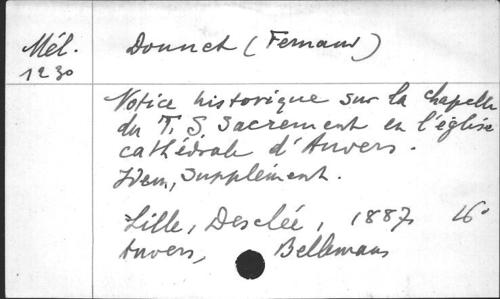 Mél. Donnet (Fernand)
1230
Notice historique sur la chapelle
du T. S. Sacrement en l'église
cathédrale d'Anvers.
Idem, Supplément.
Lille, Desclée, 1887, 16°
Anvers, Bellemans